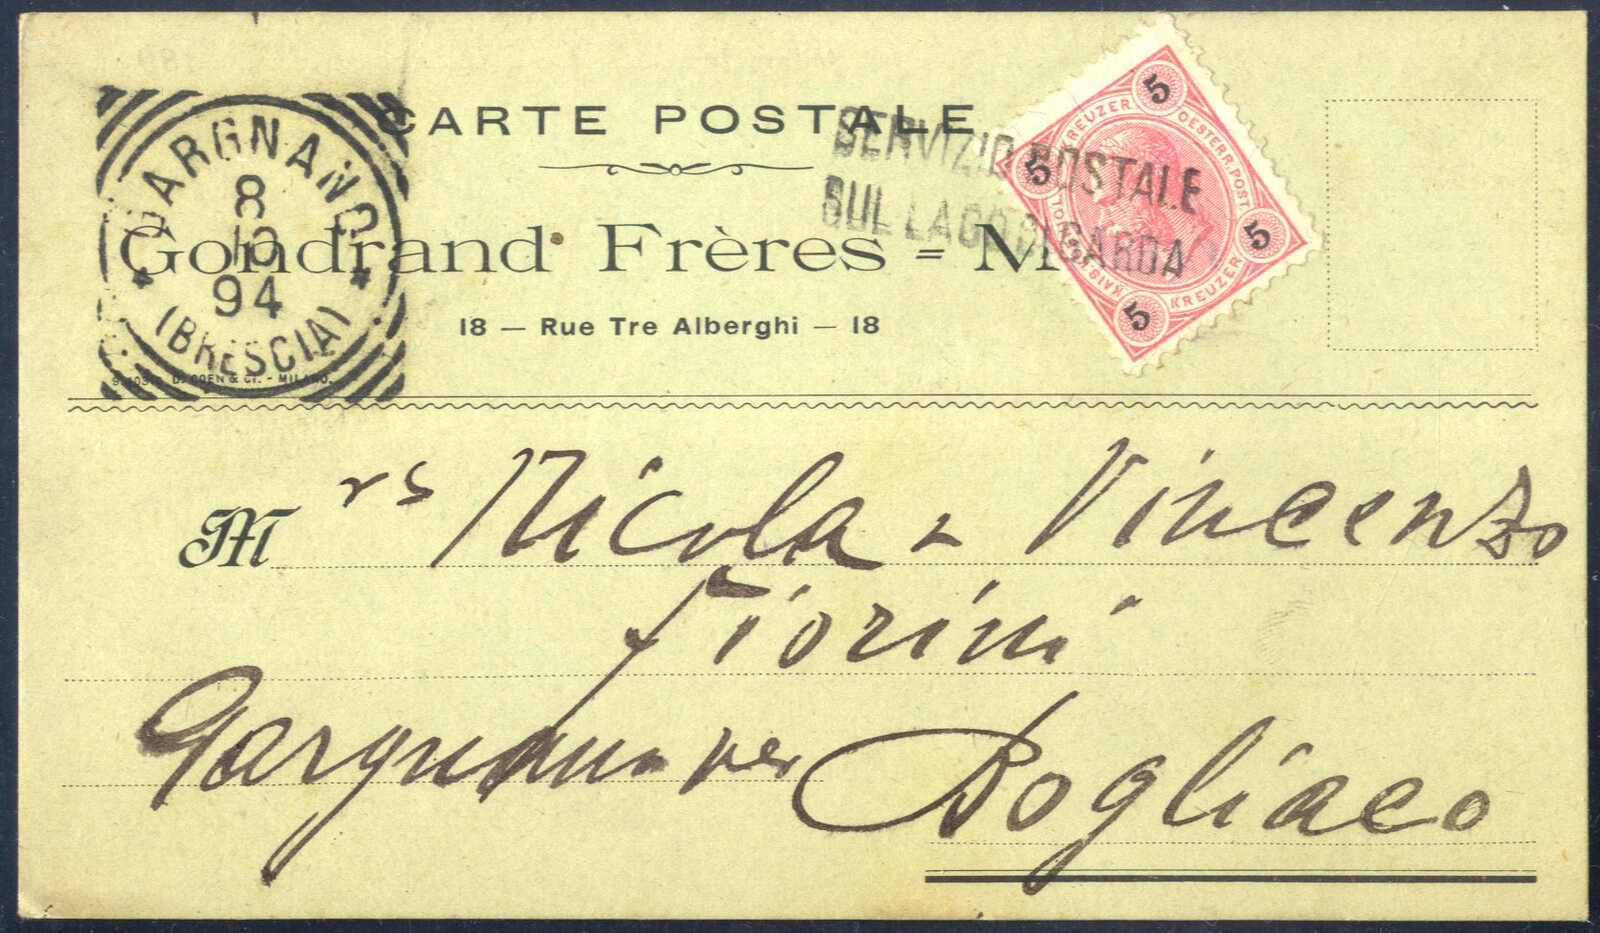 CARTE POSTALE
Gondrand Frères = M
18 — Rue Tre Alberghi — 18
GARGNANO
8
10
94
(BRESCIA)
D. COEN & Cı. - MILANO.
SERVIZIO POSTALE
SUL LAGO DI GARDA
5
KREUZER
OESTERR. POST
5
5
KREUZER
5
Mrs Nicola & Vincenzo
Fiorini
Gargnano per Bogliaco